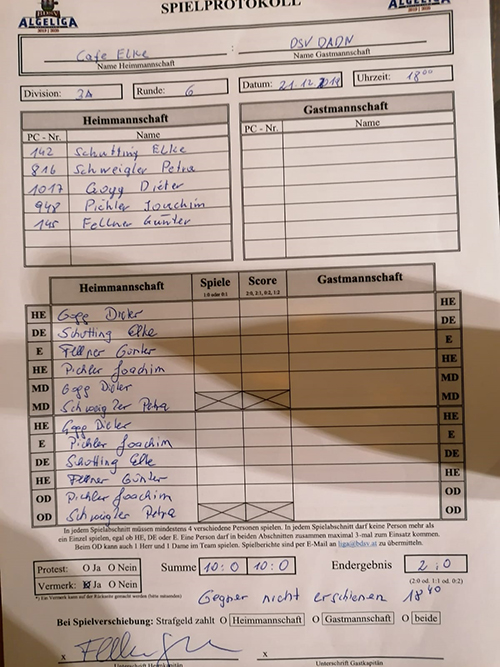 SPIELPROTOKOLL
ALGELIGA
ALGELIGA
Cafe Elke : DSV DADN
Name Heimmannschaft Name Gastmannschaft
Division: 3A Runde: 6 Datum: 21.12.2019 Uhrzeit: 18⁰⁰
Heimmannschaft Gastmannschaft
PC - Nr. Name PC - Nr. Name
142 Schutting Elke
816 Schweigler Petra
1017 Gogg Dieter
948 Pichler Joachim
145 Fellner Günter
Heimmannschaft Spiele Score Gastmannschaft
1:0 oder 0:1 2:0, 2:1, 0:2, 1:2
HE Gogg Dieter HE
DE Schutting Elke DE
E Fellner Günter E
HE Pichler Joachim HE
MD Gogg Dieter MD
MD Schweigler Petra MD
HE Gogg Dieter HE
E Pichler Joachim E
DE Schutting Elke DE
HE Fellner Günter HE
OD Pichler Joachim OD
OD Schweigler Petra OD
In jedem Spielabschnitt müssen mindestens 4 verschiedene Personen spielen. In jedem Spielabschnitt darf keine Person mehr als
ein Einzel spielen, egal ob HE, DE oder E. Eine Person darf in beiden Abschnitten zusammen maximal 3-mal zum Einsatz kommen.
Beim OD kann auch 1 Herr und 1 Dame im Team spielen. Spielberichte sind per E-Mail an liga@bdsv.at zu übermitteln.
Protest: O Ja O Nein Summe 10:0 10:0 Endergebnis 2:0
Vermerk: O Ja O Nein (2:0 od. 1:1 od. 0:2)
*) Ein Vermerk kann auf der Rückseite gemacht werden (bitte umranden)
Gegner nicht erschienen 18⁴⁰
Bei Spielverschiebung: Strafgeld zahlt O Heimmannschaft O Gastmannschaft O beide
x x
Unterschrift Heimkapitän Unterschrift Gastkapitän